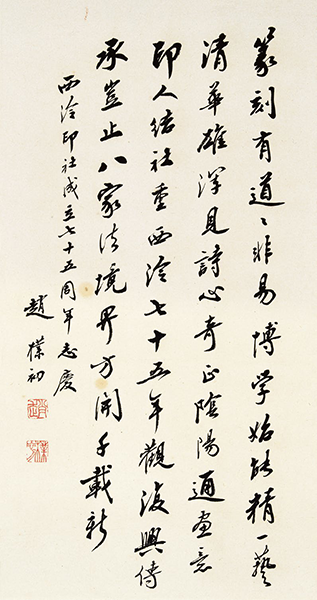 篆刻有道〻非易博学始能精一藝
清華雄深見詩心奇正陰陽通畫意
印人结社重西泠七十五年觀復興傳
承豈止八家法境界方開千載新
西泠印社成立七十五周年志慶
趙樸初